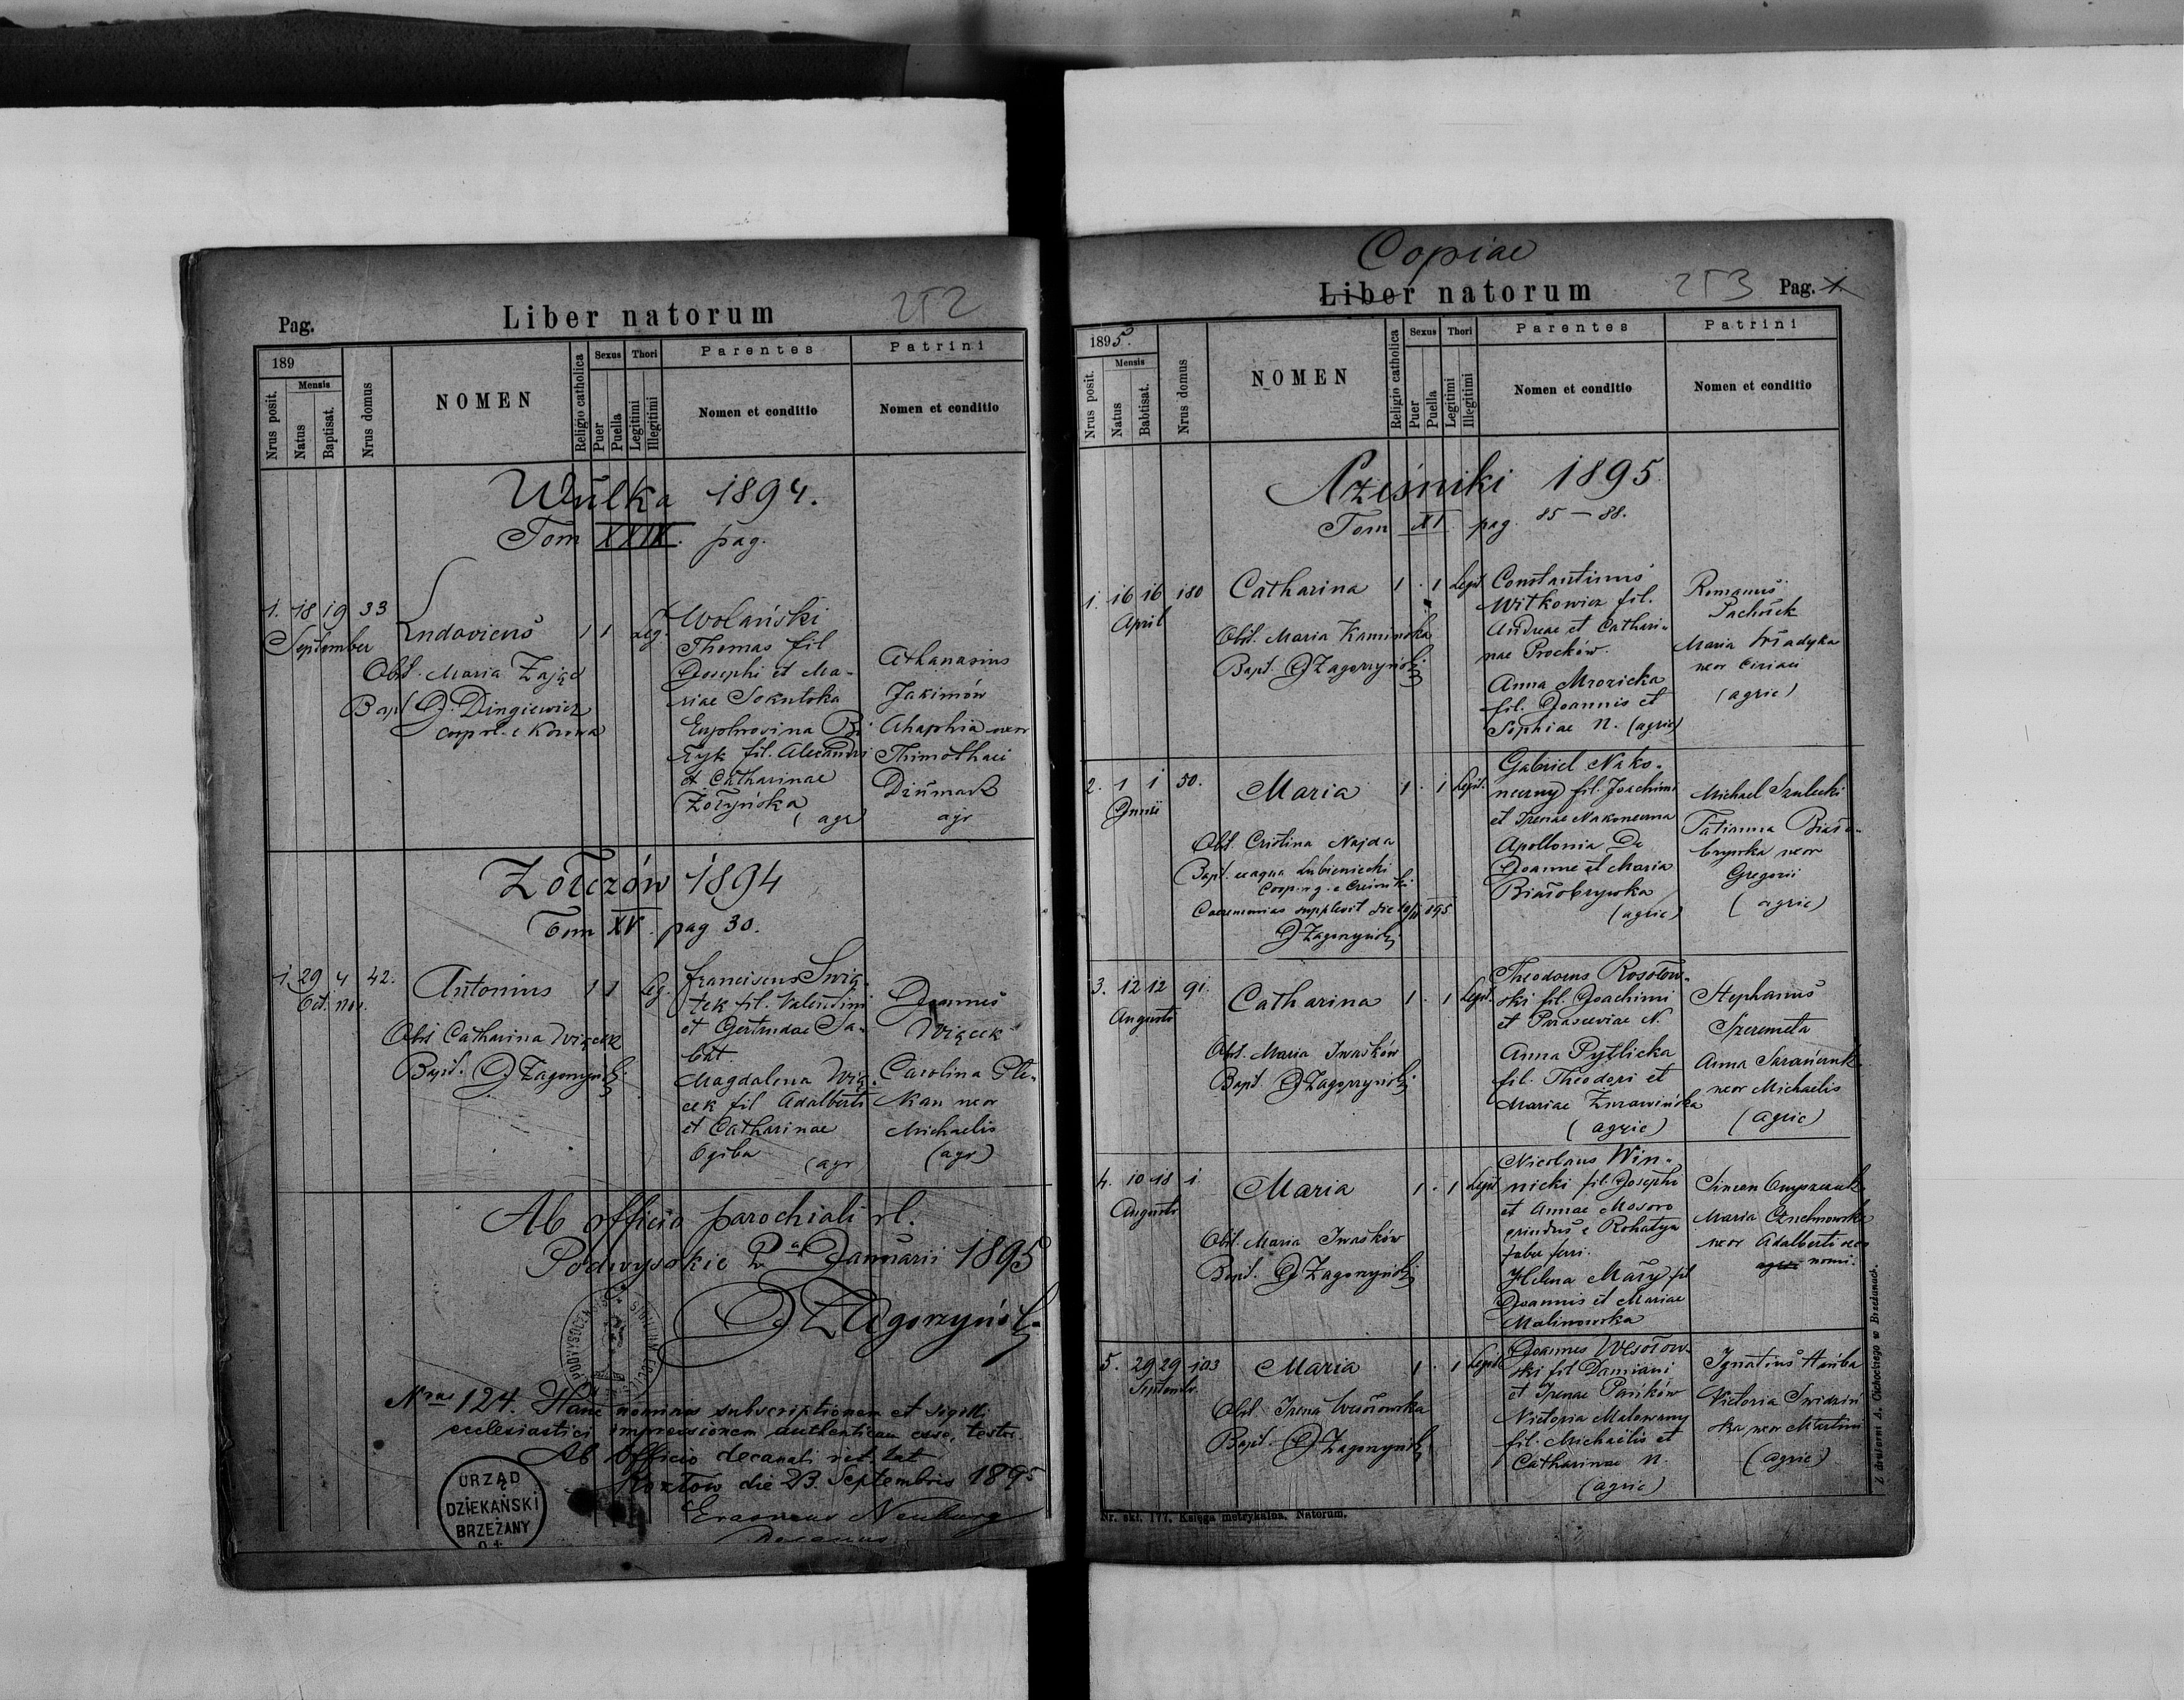 Pag.
Liber natorum
252
189
Nrus posit.
Mensis
Natus
Baptisat.
Nrus domus
NOMEN
Religio catholica
Sexus
Puer
Puella
Thori
Legitimi
Illegitimi
Parentes
Nomen et conditio
Patrini
Nomen et conditio
Wulka 1894.
Tom XXIX. pag.
1. 18 19 33
September
Ludovicus 1 1 Leg.
Obst. Maria Zając
Bapt. J. Dingiewicz
coop rl. e Korowa
Wolański
Thomas fil
Josephi et Ma-
riae Sokulska
Euphrosina Bi
fil. Alexandri
et Catharinae
Żółzyńska
(agr)
Athanasius
Jakimów
Ahaphia uxor
Thimothaei
agr
Żółczów 1894
Tom XV. pag 30.
1. 29 4 42.
Oct. nov.
Antonius 1 1 Leg.
Obst Catharina Więcek
Bapt. J Zagorzyński
Franciscus Świą-
tek fil. Valentini
et Gertrudae Sa-
bat.
Magdalena Wię-
cek fil Adalberti
et Catharinae
Ogiba (agr
Joannes
Więcek
Carolina Ste-
kan uxor
Michaelis
(agr)
Ab officio parochiali rl.
Podwysokie 2 Januarii 1895
J Zagorzyński
Nrus 124. Hanc nominis subscriptionem et sigilli
ecclesiastici impressionem authenticam esse, testor.
Ab Officio decanali rit. lat
Kozłów die 23. Septembris 1895
Erasmus Neuburg
Decanus
URZĄD
DZIEKAŃSKI
BRZEŻANY
Copiae
Liber natorum
253
Pag. 1
1895.
Nrus posit.
Mensis
Natus
Babtisat.
Nrus domus
NOMEN
Religio catholica
Sexus
Puer
Puella
Thori
Legitimi
Illegitimi
Parentes
Nomen et conditio
Patrini
Nomen et conditio
1895
Tom XI pag. 85 – 88.
1. 16 16 180
April
Catharina 1 . 1 Legit
Obst. Maria Kamińska
Bapt. J Zagorzyński
Constantinus
Witkowicz fil.
Andreae et Cathari-
nae Proćków.
Anna Mrozicka
fil. Joannis et
Sophiae N. (agric)
Romanus
Pachołek
Maria Władyka
uxor Ciriaci
(agric)
2. 1 1 50.
Junii
Maria 1 . 1 Legit.
Obst. Cristina Najda
Bapt. ex aqua Lubieniecki
Caeremonias supplevit die
J Zagorzyński
Gabriel Nako-
neczny fil. Joachimi
et Irenae Nakoneczna
Apollonia De
Joanne et Maria
Białobrywka
(agric)
Michael Szulecki
Tatianna Biało-
brywka uxor
Gregorii
(agric)
3. 12 12 91.
Augusti
Catharina 1 . 1 Legit.
Obst. Maria Iwaśków
Bapt. J Zagorzyński
Theodorus Rosołow-
ski fil. Joachimi
et Parasceviae N.
Anna Pytlicka
fil. Theodori et
Mariae Żurawińska
(agric)
Stephanus
Szeremeta
Anna Sarańczuk
uxor Michaelis
(agric)
4. 10 18 1.
Augusti
Maria 1 . 1 Legit
Obst. Maria Iwaśków
Bapt. J Zagorzyński
Nicolaus Win-
nicki fil. Josephi
et Annae Mosoro
e Rohatyn
faber ferri.
Helena Mały fil
Joannis et Mariae
Malinowska
Simeon
Maria
uxor Adalberti oeco
nomi.
5. 29 29 103
Septembr.
Maria 1 . 1 Legit
Obst. Irena Wesołowska
Bapt. J Zagorzyński
Joannes Wesołow-
ski fil Damiani
et Irenae Pańków
Victoria Malowany
fil. Michaelis et
Catharinae N.
(agric)
Ignatius Hańba
Victoria Świdziń
ska uxor Martini
(agric)
Nr. skł. 177. Księga metrykalna. Natorum.
Z drukarni A. Cichockiego w Brzeżanach.